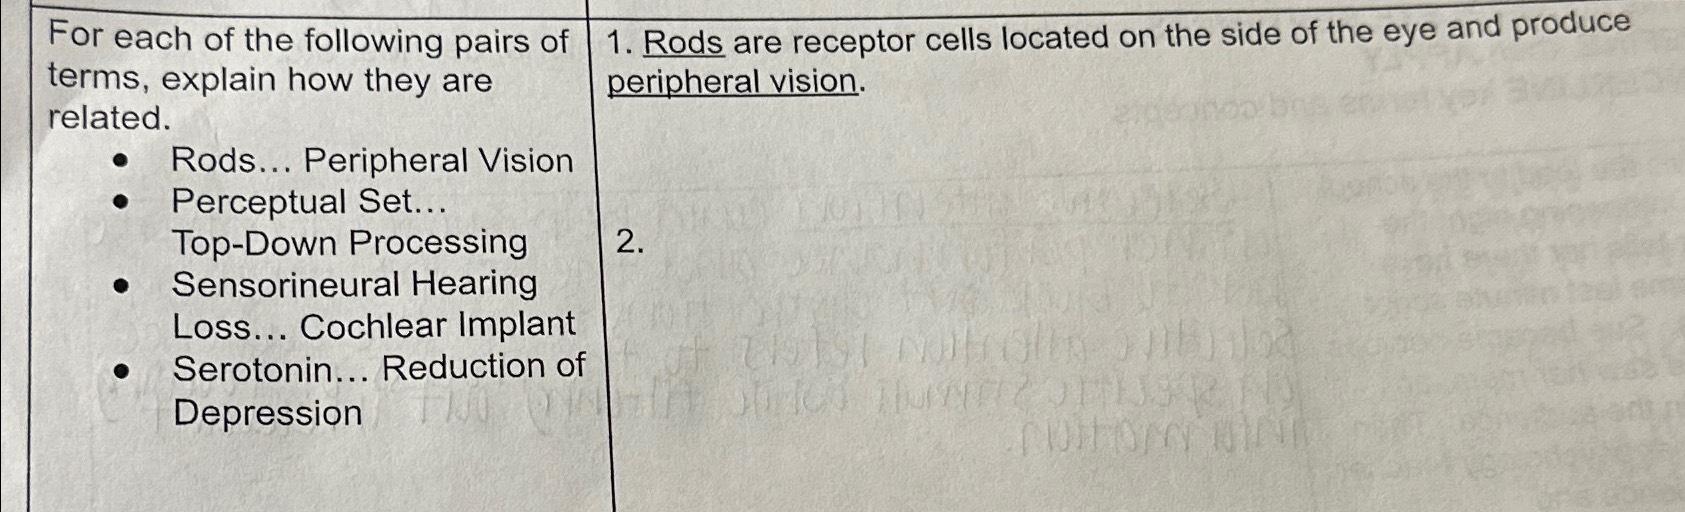 For each of the following pairs of
terms, explain how they are
related.
• Rods... Peripheral Vision
• Perceptual Set...
Top-Down Processing
• Sensorineural Hearing
Loss... Cochlear Implant
• Serotonin... Reduction of
Depression
1. Rods are receptor cells located on the side of the eye and produce
peripheral vision.
2.